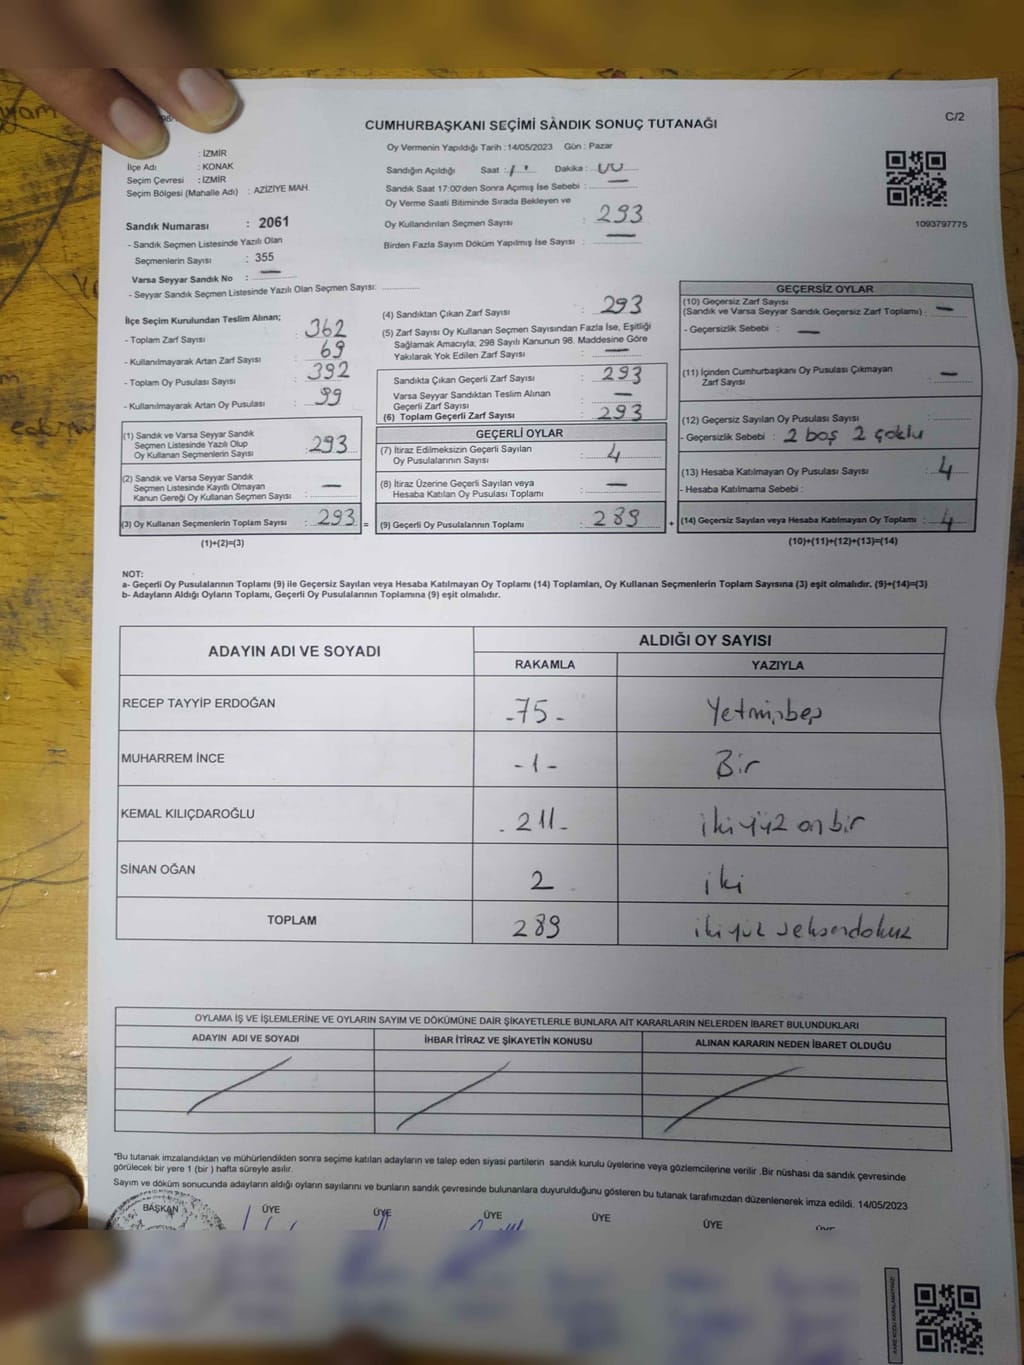 C/2
CUMHURBAŞKANI SEÇİMİ SANDIK SONUÇ TUTANAĞI
: İZMİR
İlçe Adı : KONAK
Seçim Çevresi : İZMİR
Seçim Bölgesi (Mahalle Adı) : AZİZİYE MAH.
Oy Vermenin Yapıldığı Tarih : 14/05/2023 Gün : Pazar
Sandığın Açıldığı Saat : Dakika :
Sandık Saat 17:00'den Sonra Açımış İse Sebebi : —
Oy Verme Saati Bitiminde Sırada Bekleyen ve
Oy Kullandırılan Seçmen Sayısı : 293
Birden Fazla Sayım Döküm Yapılmış İse Sayısı : —
1093797775
Sandık Numarası : 2061
- Sandık Seçmen Listesinde Yazılı Olan
Seçmenlerin Sayısı : 355
Varsa Seyyar Sandık No : —
- Seyyar Sandık Seçmen Listesinde Yazılı Olan Seçmen Sayısı:
İlçe Seçim Kurulundan Teslim Alınan;
- Toplam Zarf Sayısı : 362
- Kullanılmayarak Artan Zarf Sayısı : 69
- Toplam Oy Pusulası Sayısı : 392
- Kullanılmayarak Artan Oy Pusulası : 99
(1) Sandık ve Varsa Seyyar Sandık
Seçmen Listesinde Yazılı Olup
Oy Kullanan Seçmenlerin Sayısı : 293
(2) Sandık ve Varsa Seyyar Sandık
Seçmen Listesinde Kayıtlı Olmayan
Kanun Gereği Oy Kullanan Seçmen Sayısı : —
(3) Oy Kullanan Seçmenlerin Toplam Sayısı : 293 =
(1)+(2)=(3)
(4) Sandıktan Çıkan Zarf Sayısı : 293
(5) Zarf Sayısı Oy Kullanan Seçmen Sayısından Fazla İse, Eşitliği
Sağlamak Amacıyla; 298 Sayılı Kanunun 98. Maddesine Göre
Yakılarak Yok Edilen Zarf Sayısı : —
Sandıkta Çıkan Geçerli Zarf Sayısı : 293
Varsa Seyyar Sandıktan Teslim Alınan
Geçerli Zarf Sayısı : —
(6) Toplam Geçerli Zarf Sayısı : 293
GEÇERLİ OYLAR
(7) İtiraz Edilmeksizin Geçerli Sayılan
Oy Pusulalarının Sayısı : 4
(8) İtiraz Üzerine Geçerli Sayılan veya
Hesaba Katılan Oy Pusulası Toplamı : —
(9) Geçerli Oy Pusulalarının Toplamı : 289 +
GEÇERSİZ OYLAR
(10) Geçersiz Zarf Sayısı
(Sandık ve Varsa Seyyar Sandık Geçersiz Zarf Toplamı) : —
- Geçersizlik Sebebi : —
(11) İçinden Cumhurbaşkanı Oy Pusulası Çıkmayan
Zarf Sayısı : —
(12) Geçersiz Sayılan Oy Pusulası Sayısı :
- Geçersizlik Sebebi : 2 boş 2 çoklu
(13) Hesaba Katılmayan Oy Pusulası Sayısı : 4
- Hesaba Katılmama Sebebi :
(14) Geçersiz Sayılan veya Hesaba Katılmayan Oy Toplamı : 4
(10)+(11)+(12)+(13)=(14)
NOT:
a- Geçerli Oy Pusulalarının Toplamı (9) ile Geçersiz Sayılan veya Hesaba Katılmayan Oy Toplamı (14) Toplamları, Oy Kullanan Seçmenlerin Toplam Sayısına (3) eşit olmalıdır. (9)+(14)=(3)
b- Adayların Aldığı Oyların Toplamı, Geçerli Oy Pusulalarının Toplamına (9) eşit olmalıdır.
ADAYIN ADI VE SOYADI
ALDIĞI OY SAYISI
RAKAMLA YAZIYLA
RECEP TAYYİP ERDOĞAN -75- Yetmişbeş
MUHARREM İNCE -1- Bir
KEMAL KILIÇDAROĞLU -211- ikiyüz onbir
SİNAN OĞAN 2 iki
TOPLAM 289 ikiyüz seksendokuz
OYLAMA İŞ VE İŞLEMLERİNE VE OYLARIN SAYIM VE DÖKÜMÜNE DAİR ŞİKAYETLERLE BUNLARA AİT KARARLARIN NELERDEN İBARET BULUNDUKLARI
ADAYIN ADI VE SOYADI İHBAR İTİRAZ VE ŞİKAYETİN KONUSU ALINAN KARARIN NEDEN İBARET OLDUĞU
*Bu tutanak imzalandıktan ve mühürlendikten sonra seçime katılan adayların ve talep eden siyasi partilerin sandık kurulu üyelerine veya gözlemcilerine verilir .Bir nüshası da sandık çevresinde
görülecek bir yere 1 (bir ) hafta süreyle asılır.
Sayım ve döküm sonucunda adayların aldığı oyların sayılarını ve bunların sandık çevresinde bulunanlara duyurulduğunu gösteren bu tutanak tarafımızdan düzenlenerek imza edildi. 14/05/2023
BAŞKAN ÜYE ÜYE ÜYE ÜYE ÜYE ÜYE